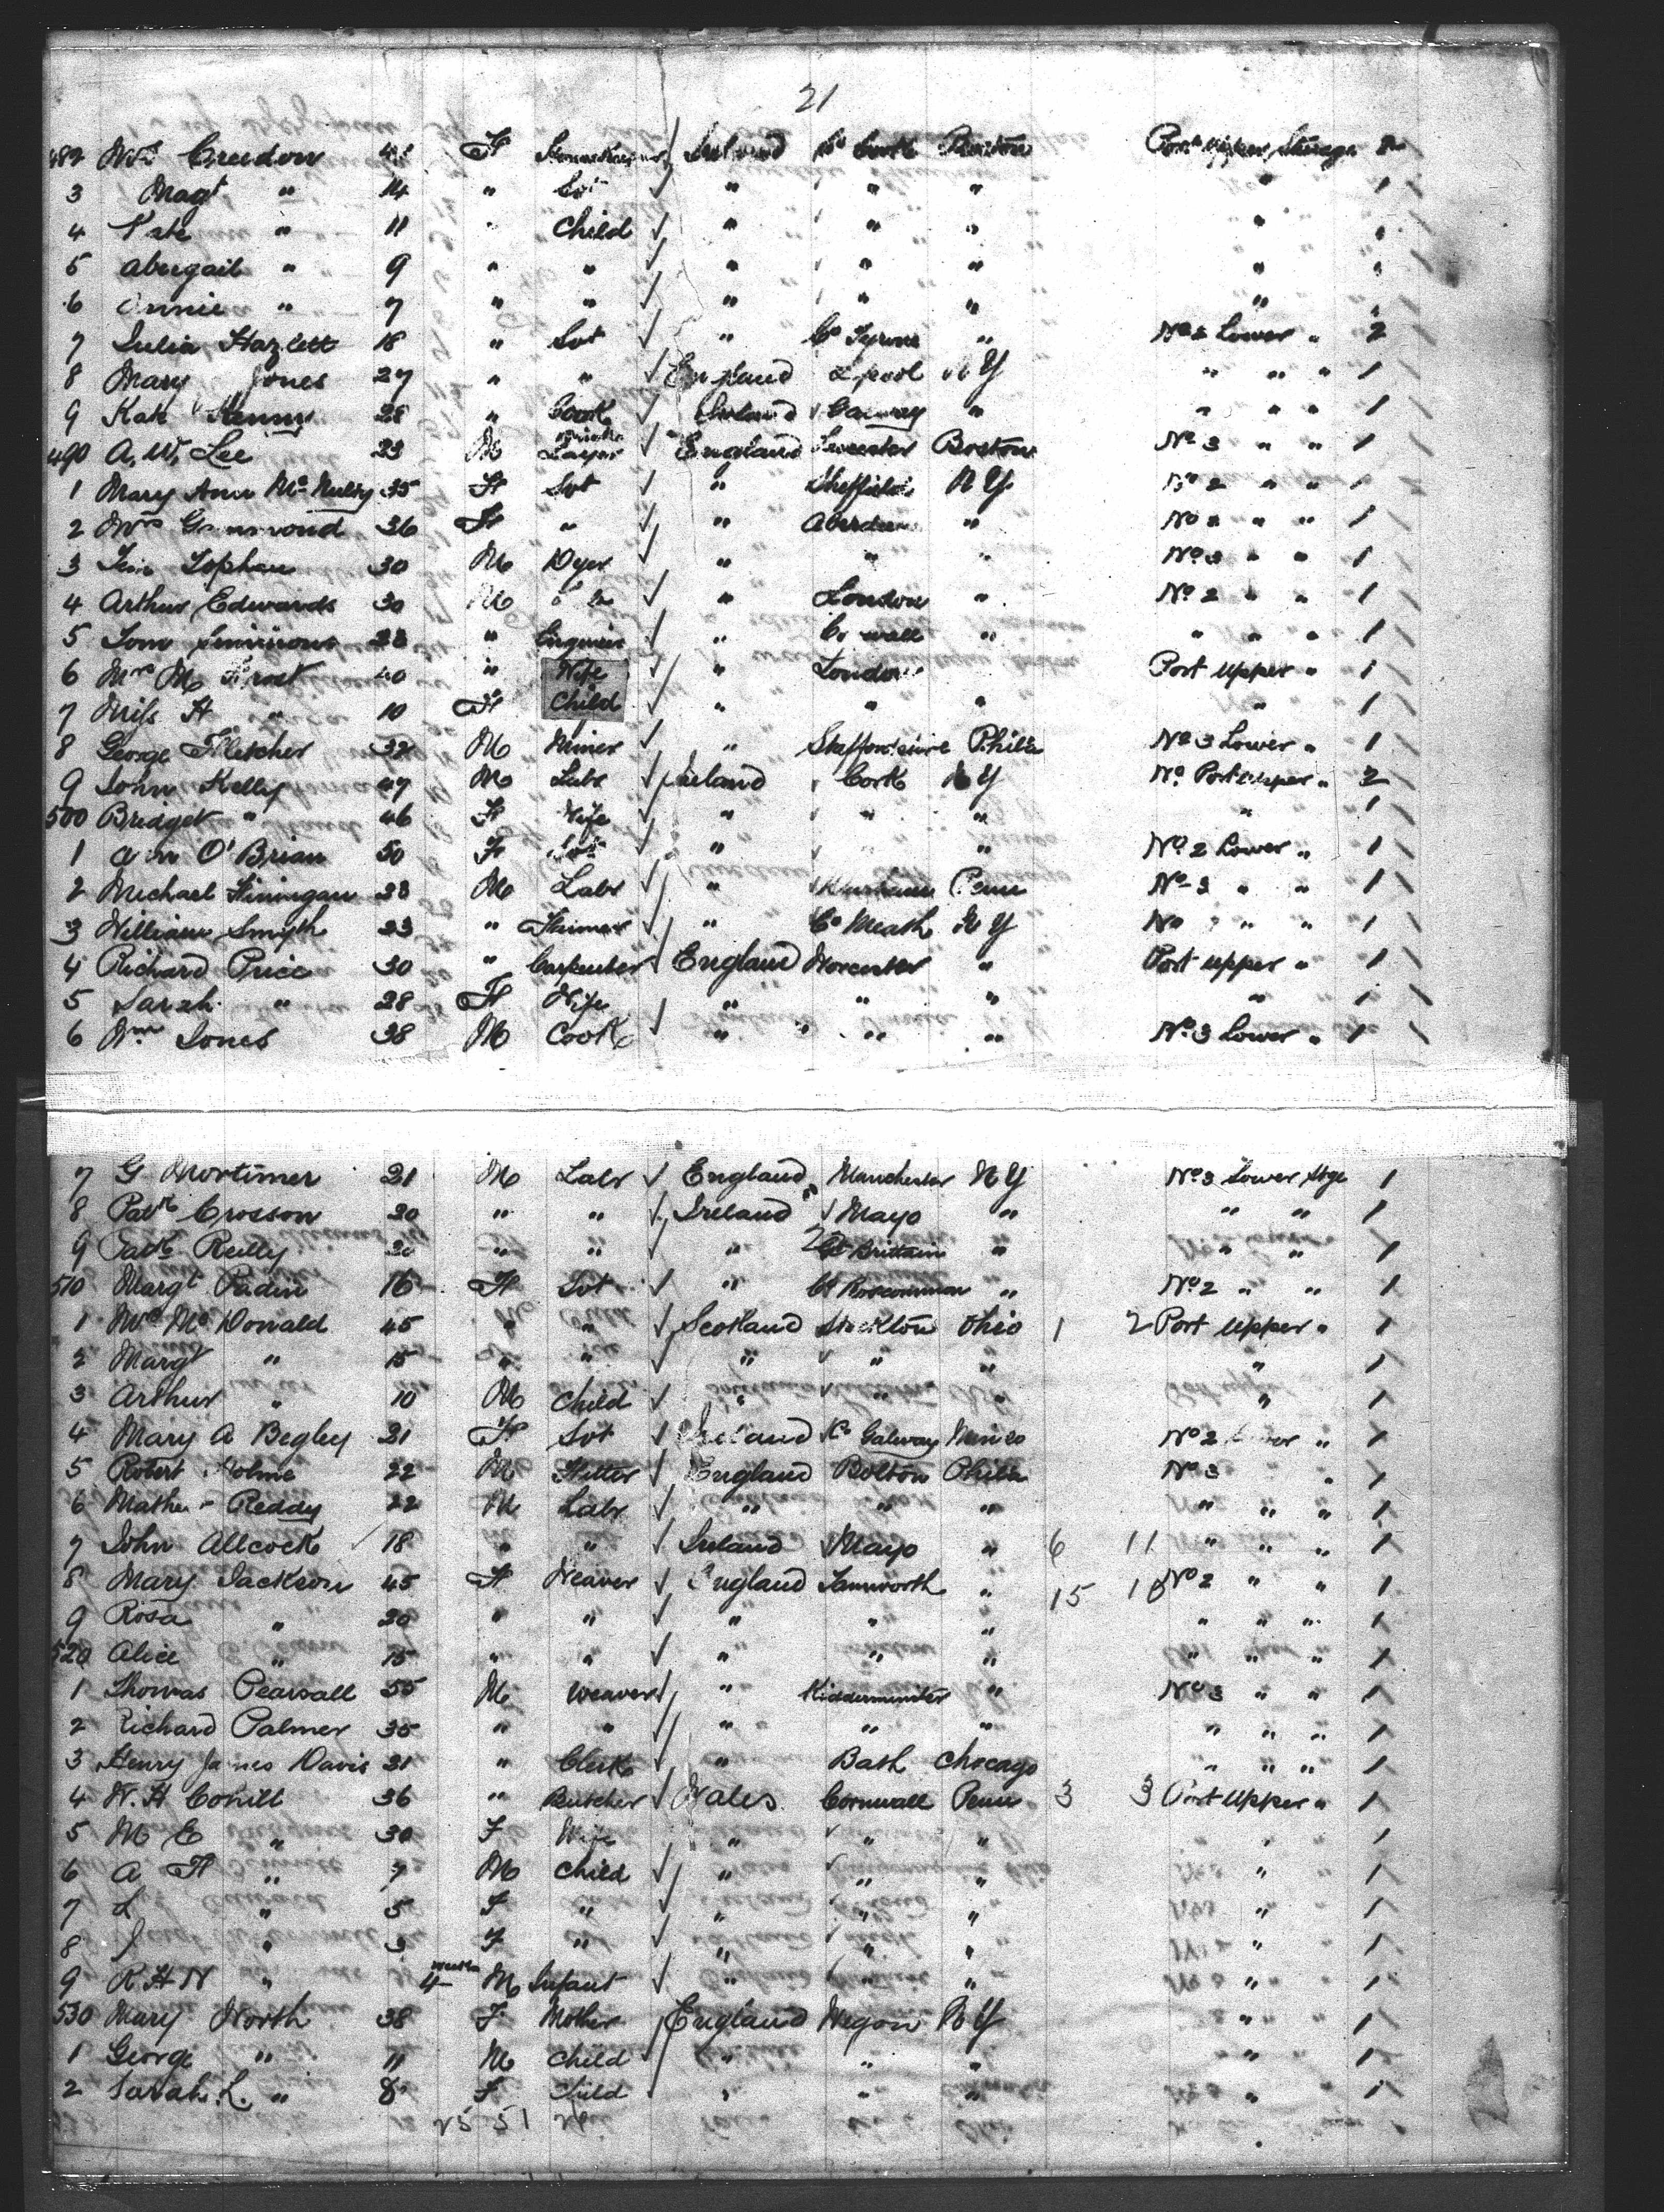 21
482 Mrs Creedon 45 F Housekeeper Ireland Co Cork Boston Port Upper Steerage 2
3 Magt " 14 " Svt " " " " 1
4 Kate " 11 " Child " " " "
5 Abegail " 9 " " " " " "
6 Annie " 7 " " " " " "
7 Julia Hazlett 18 " Svt " Co Tyrone " No 2 Lower " 2
8 Mary Jones 27 " " England Lpool N Y " " " 1
9 Kate Kenny 28 " Cook Ireland Galway " " " " 1
490 A. W. Lee 23 M Layer England Leicester Boston No 3 " " 1
1 Mary Ann McNulty 35 F Svt " Sheffield N Y No 2 " " 1
2 Mrs 36 F " " Aberdeen " No 2 " " 1
3 Tophan 30 M Dyer " " " No 3 " " 1
4 Arthur Edwards 30 M " London " No 2 " " 1
5 Tom 28 " Engineer " " " " " 1
6 Mrs M Frost 40 " Wife " London Port Upper " 1
7 Miss H " 10 F Child " " " " 1
8 George Fletcher 32 M Miner " Staffordshire Phila No 3 Lower " 1
9 John Kelly 47 M Labr Ireland Cork N Y No Port Upper " 2
500 Bridget " 46 F Wife " " " " 1
1 Ann O'Brian 50 F Svt " " No 2 Lower " 1
2 Michael Finnigan 28 M Labr " Penn No 3 " " 1
3 William Smyth 23 " Farmer " Co Meath N Y No " " 1
4 Richard Price 30 " Carpenter England Worcester " Port Upper " 1
5 Sarah " 28 F Wife " " " " 1
6 Wm Jones 38 M Cook " " " No 3 Lower " 1
7 G Mortimer 21 M Labr England Manchester N Y No 3 Lower Stge 1
8 Patk Crosson 20 " " Ireland Mayo " " " 1
9 Patk Reilly " " " Gt Brittain " " " 1
510 Margt Padin 16 F Svt " Co Roscommon " No 2 " " 1
1 Mrs McDonald 45 " " Scotland Stockton Ohio 1 2 Port Upper " 1
2 Margt " 15 " " " " " " 1
3 Arthur " 10 M Child " " " " 1
4 Mary A Begley 21 F Svt Ireland Co Galway No 2 Lower " 1
5 Robert Holme 22 M Fitter England Bolton Phila No 3 " 1
6 Mathew Reddy 22 M Labr " " " " " " 1
7 John Allcock 18 " " Ireland Mayo " 6 11 " " " 1
8 Mary Jackson 45 F Weaver England Tamworth " 15 18 No 2 " " 1
9 Rosa " 20 " " " " " " " " 1
520 Alice " 15 " " " " " " " " 1
1 Thomas Pearsall 55 M Weaver " Kidderminster " No 3 " " 1
2 Richard Palmer 35 " " " " " " " " 1
3 Henry James Davis 21 " Clerk " Bath Chicago " " " 1
4 W. H Conill 36 " Butcher Wales Cornwall Penn 3 3 Port Upper " 1
5 M E " 30 F Wife " " " " 1
6 A H " 7 M Child " " " " 1
7 L " 5 F " " " " " 1
8 J " 3 F " " " " " 1
9 R H N " 4 months M Infant " " " " 1
530 Mary North 38 F Mother England Wigan N Y " " 1
1 George " 11 M Child " " " " 1
2 Sarah. L. " 8 F Child " " " " 1
25 51